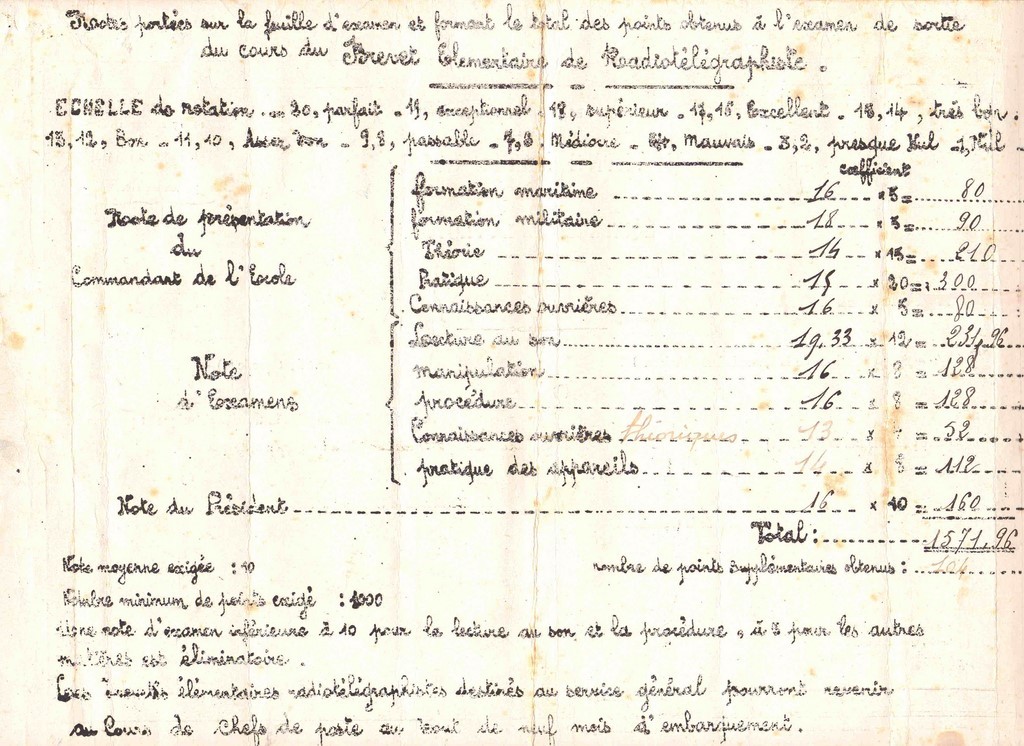 Notes portées sur la feuille d'examen et formant le total des points obtenus à l'examen de sortie
du cours du Brevet Elementaire de Radiotélégraphiste.
ECHELLE de notation ... 20, parfait - 19, exceptionnel - 18, supérieur - 17, 16, Excellent - 15, 14, très bon.
13, 12, Bon - 11, 10, Assez bon - 9, 8, passable - 7, 6. Médiocre - 5, 4, Mauvais - 3, 2, presque Nul - 1, Nul -
coefficient
formation maritime 16 x 5 = 80
Note de présentation
du
Commandant de l'Ecole
formation militaire 18 x 5 = 90
Théorie 14 x 15 = 210
Pratique 15 x 20 = 300
Connaissances ouvrières 16 x 5 = 80
Note
d'Examens
Lecture au son 19.33 x 12 = 231,96
manipulation 16 x 8 = 128
procédure 16 x 8 = 128
Connaissances ouvrières théoriques 13 x = 52
pratique des appareils 14 x 8 = 112
Note du Président 16 x 10 = 160
Total : 1571,96
Note moyenne exigée : 10
nombre de points supplémentaires obtenus :
Nombre minimum de points exigé : 1000
Une note d'examen inférieure à 10 pour la lecture au son et la procédure, à 5 pour les autres
matières est éliminatoire.
Les brevetés élémentaires radiotélégraphistes destinés au service général pourront revenir
au Cours de chefs de poste au bout de neuf mois d'embarquement.